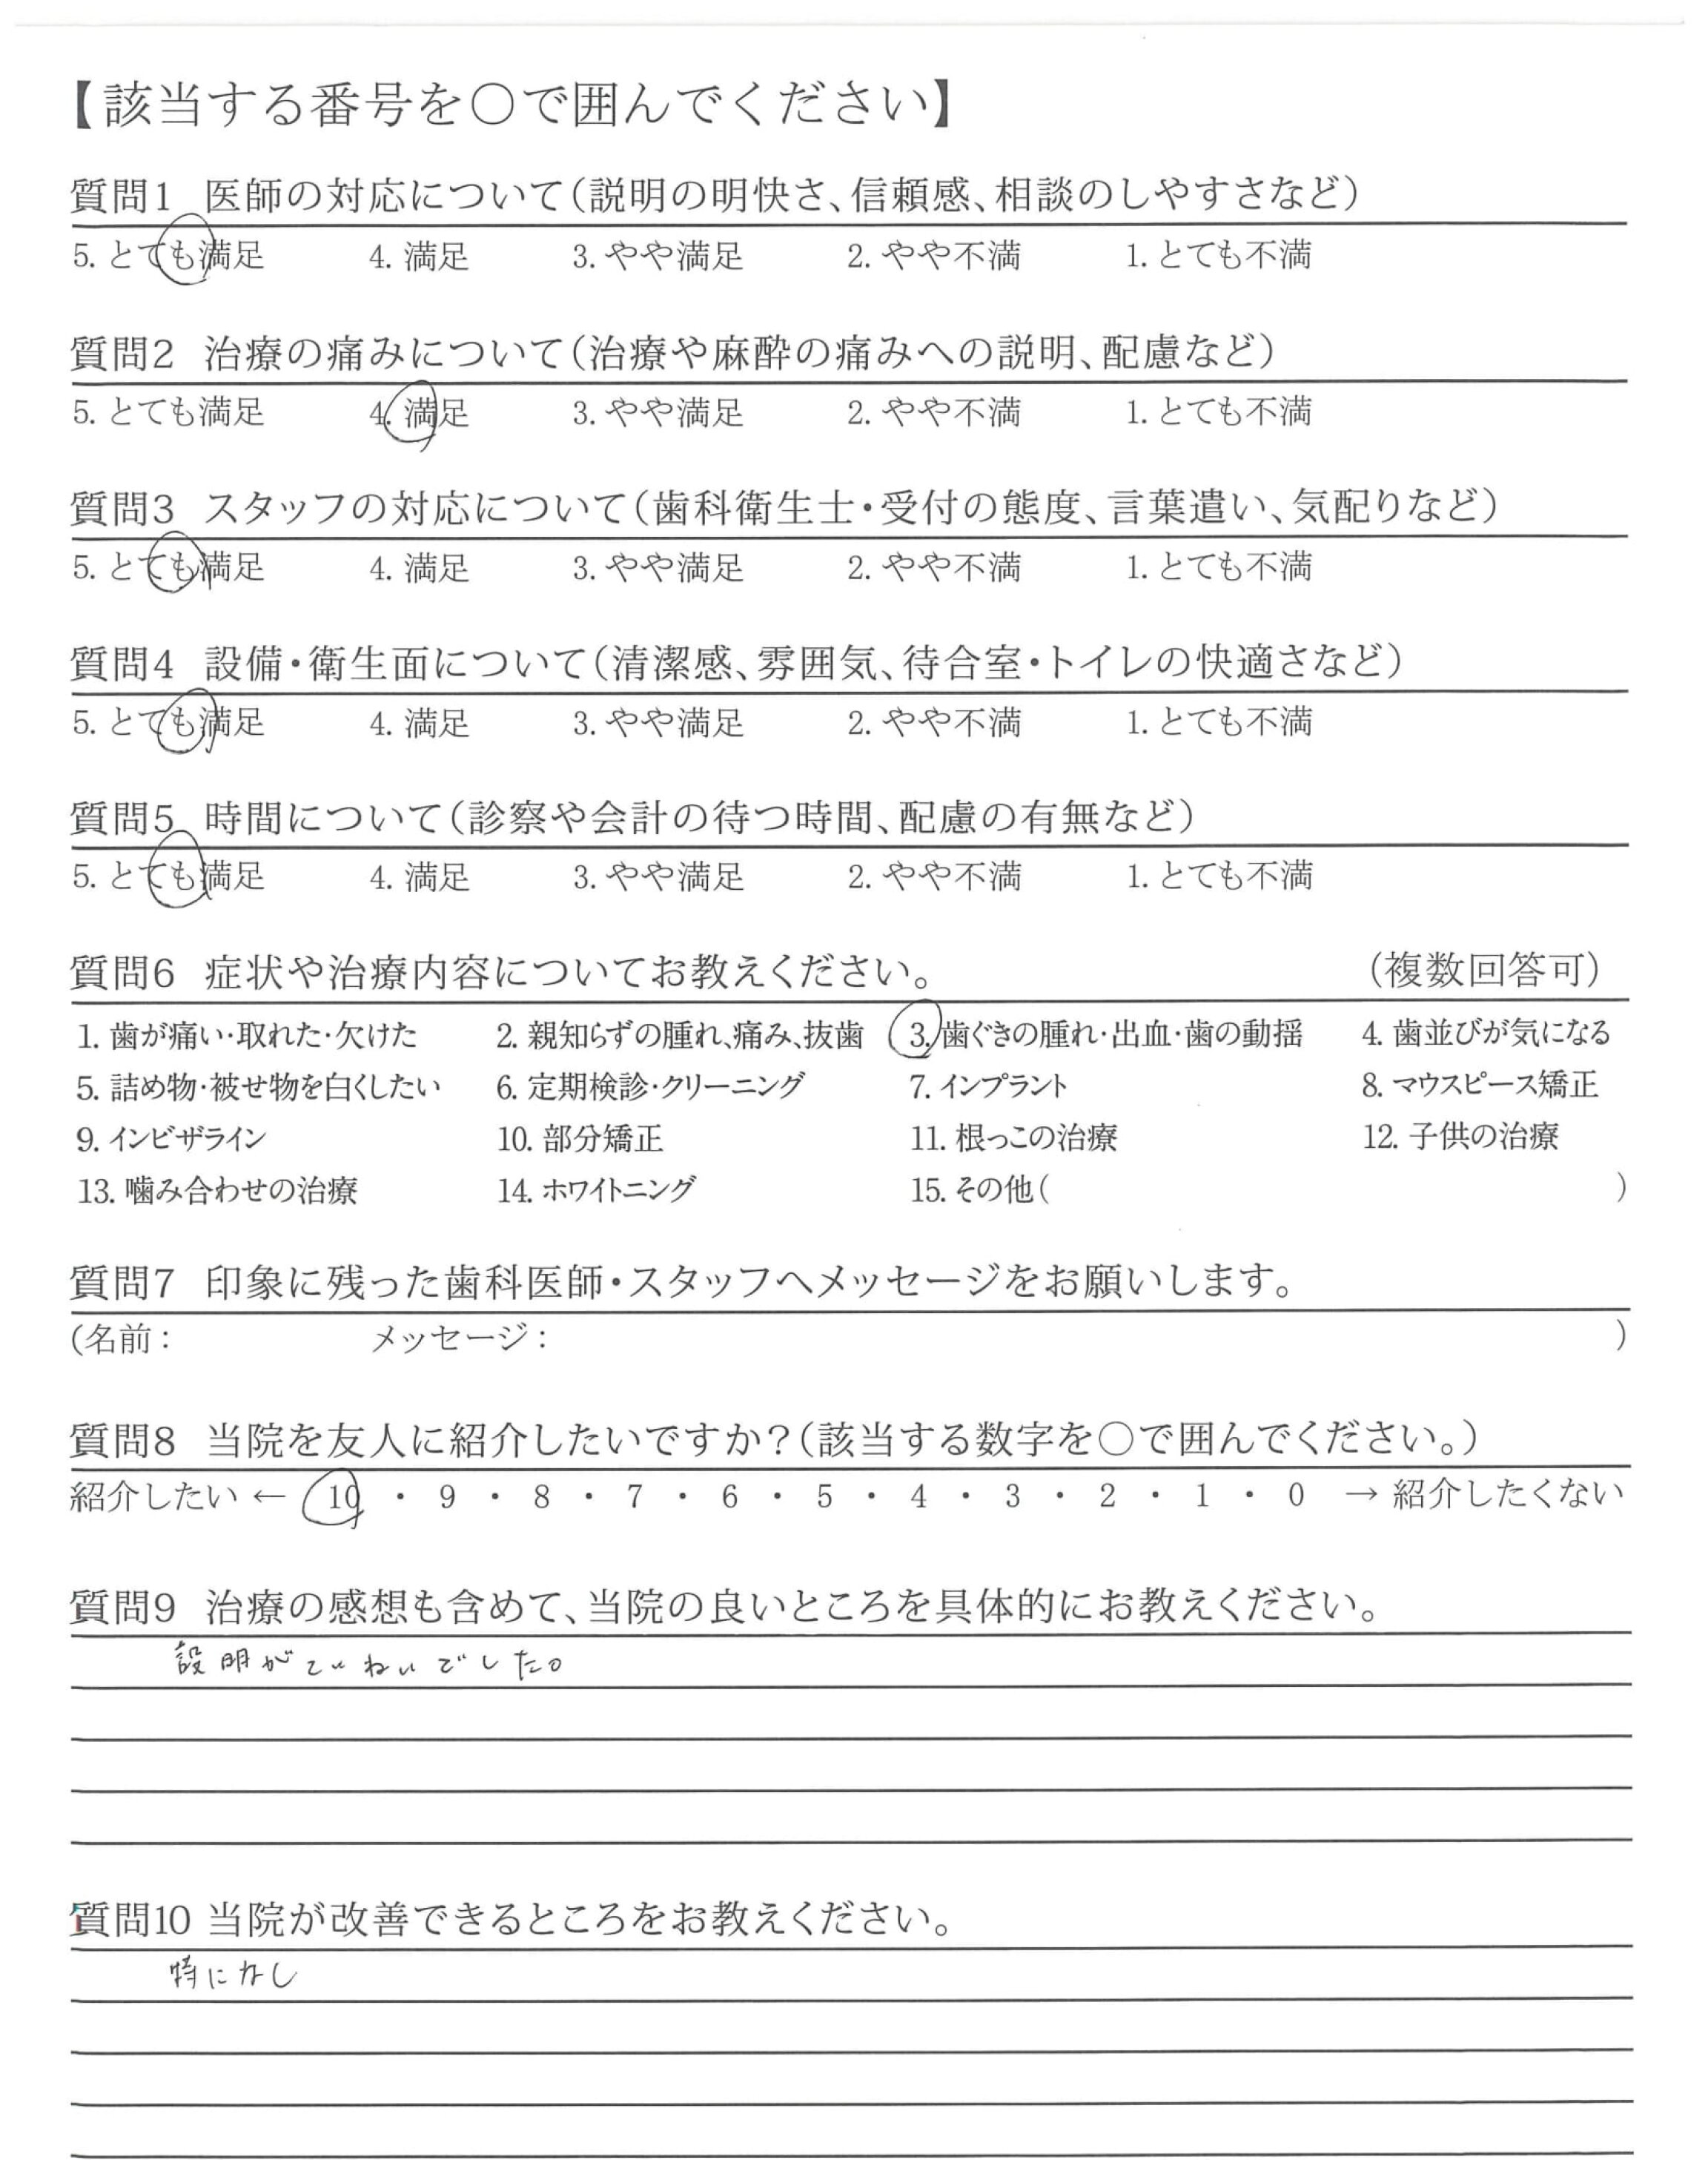 【該当する番号を〇で囲んでください】
質問1 医師の対応について(説明の明快さ、信頼感、相談のしやすさなど)
5. とても満足 4. 満足 3. やや満足 2. やや不満 1. とても不満
質問2 治療の痛みについて(治療や麻酔の痛みへの説明、配慮など)
5. とても満足 4. 満足 3. やや満足 2. やや不満 1. とても不満
質問3 スタッフの対応について(歯科衛生士・受付の態度、言葉遣い、気配りなど)
5. とても満足 4. 満足 3. やや満足 2. やや不満 1. とても不満
質問4 設備・衛生面について(清潔感、雰囲気、待合室・トイレの快適さなど)
5. とても満足 4. 満足 3. やや満足 2. やや不満 1. とても不満
質問5 時間について(診察や会計の待つ時間、配慮の有無など)
5. とても満足 4. 満足 3. やや満足 2. やや不満 1. とても不満
質問6 症状や治療内容についてお教えください。 (複数回答可)
1. 歯が痛い・取れた・欠けた 2. 親知らずの腫れ、痛み、抜歯 3. 歯ぐきの腫れ・出血・歯の動揺 4. 歯並びが気になる
5. 詰め物・被せ物を白くしたい 6. 定期検診・クリーニング 7. インプラント 8. マウスピース矯正
9. インビザライン 10. 部分矯正 11. 根っこの治療 12. 子供の治療
13. 噛み合わせの治療 14. ホワイトニング 15. その他( )
質問7 印象に残った歯科医師・スタッフへメッセージをお願いします。
(名前: メッセージ: )
質問8 当院を友人に紹介したいですか?(該当する数字を〇で囲んでください。)
紹介したい ← 10 ・ 9 ・ 8 ・ 7 ・ 6 ・ 5 ・ 4 ・ 3 ・ 2 ・ 1 ・ 0 → 紹介したくない
質問9 治療の感想も含めて、当院の良いところを具体的にお教えください。
説明がていねいでした。
質問10 当院が改善できるところをお教えください。
特になし